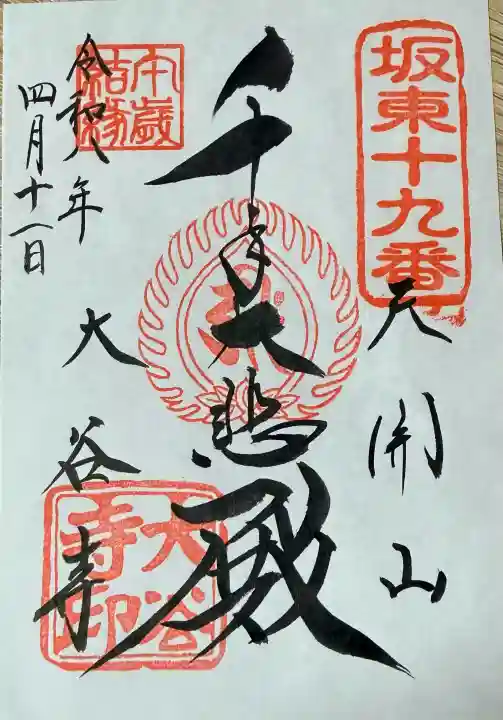 坂東十九番
天開山
千手大悲殿
午歳
結縁
令和八年
四月十一日
大谷寺
大谷
寺印